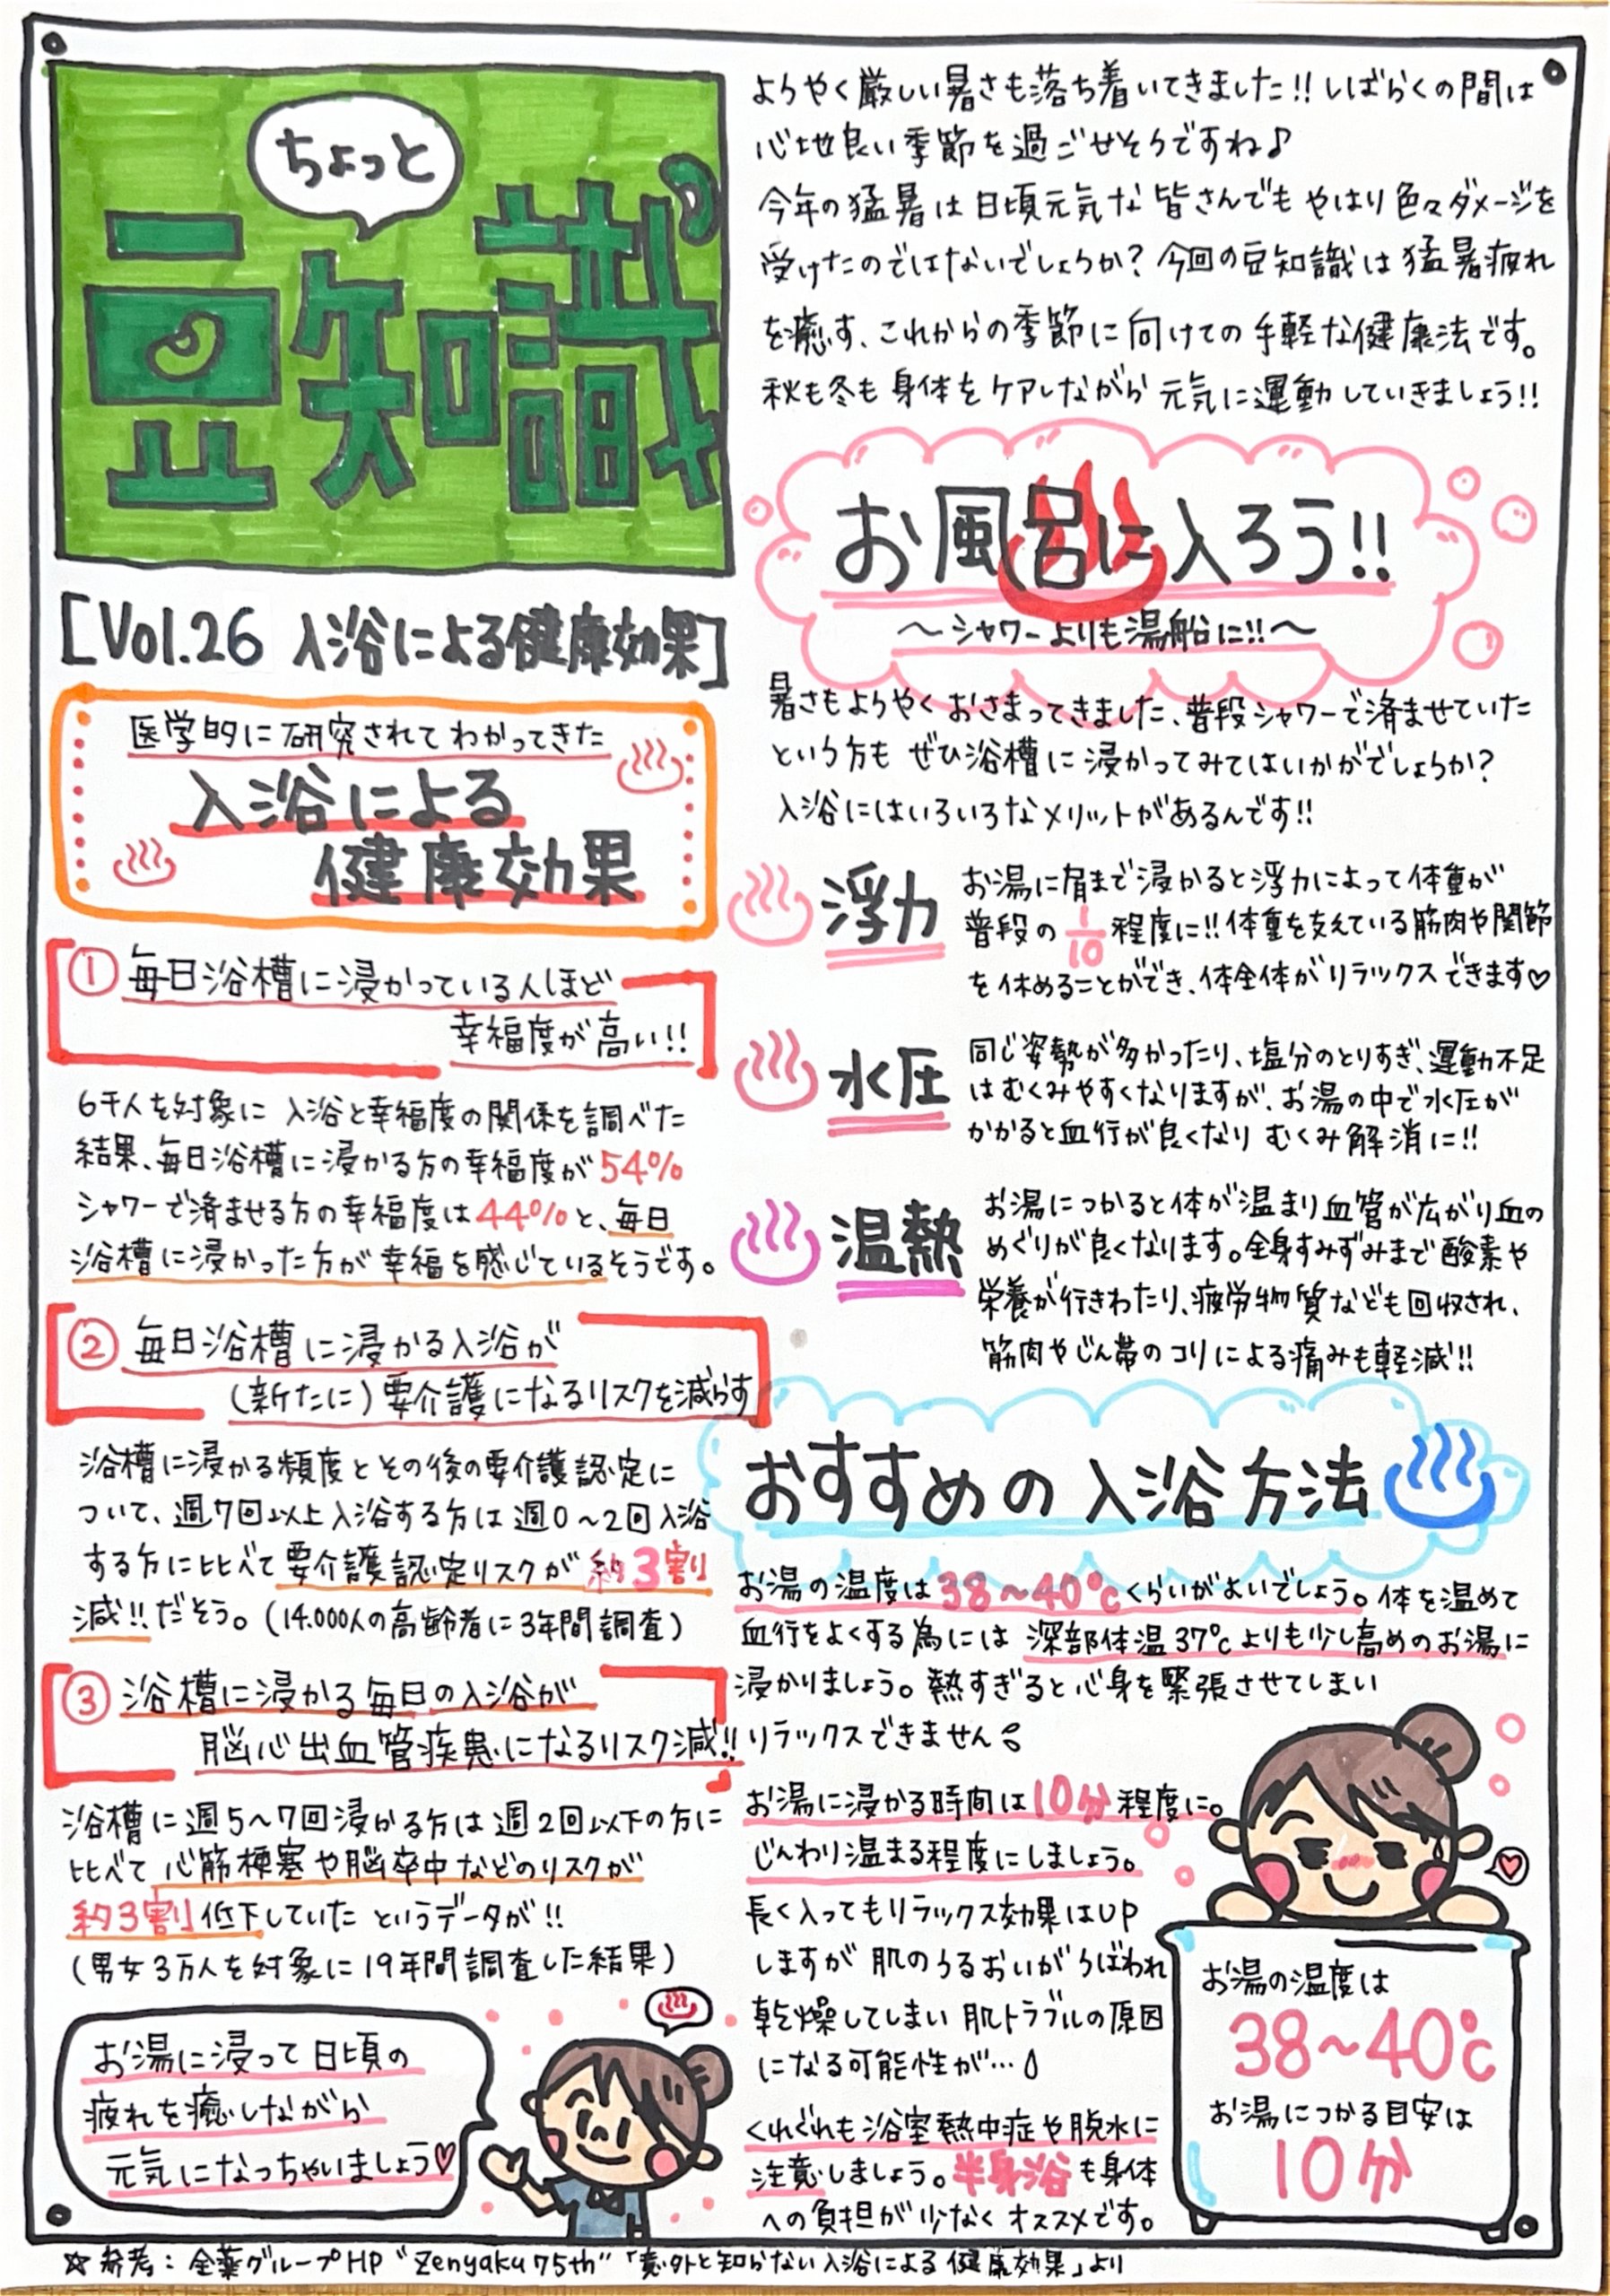 ちょっと
豆知識
[Vol.26 入浴による健康効果]
医学的に研究されてわかってきた
入浴による
健康効果
① 毎日浴槽に浸かっている人ほど
幸福度が高い!!
6千人を対象に 入浴と幸福度の関係を調べた
結果、毎日浴槽に浸かる方の幸福度が54%
シャワーで済ませる方の幸福度は44%と、毎日
浴槽に浸かった方が幸福を感じているそうです。
② 毎日浴槽に浸かる入浴が
(新たに)要介護になるリスクを減らす
浴槽に浸かる頻度とその後の要介護認定に
ついて、週7回以上入浴する方は週0~2回入浴
する方に比べて要介護認定リスクが約3割
減!!だそう。(14.000人の高齢者に3年間調査)
③ 浴槽に浸かる毎日の入浴が
脳心出血管疾患になるリスク減!!
浴槽に週5~7回浸かる方は週2回以下の方に
比べて 心筋梗塞や脳卒中などのリスクが
約3割低下していた というデータが!!
(男女3万人を対象に19年間調査した結果)
お湯に浸って日頃の
疲れを癒しながら
元気になっちゃいましょう♡
ようやく厳しい暑さも落ち着いてきました!!しばらくの間は
心地良い季節を過ごせそうですね♪
今年の猛暑は日頃元気な皆さんでもやはり色々ダメージを
受けたのではないでしょうか?今回の豆知識は猛暑疲れ
を癒す、これからの季節に向けての手軽な健康法です。
秋も冬も身体をケアしながら元気に運動していきましょう!!
お風呂に入ろう!!
~シャワーよりも湯船に!!~
暑さもようやくおさまってきました、普段シャワーで済ませていた
という方も ぜひ浴槽に浸かってみてはいかがでしょうか?
入浴にはいろいろなメリットがあるんです!!
浮力
お湯に肩まで浸かると浮力によって体重が
普段の1/10程度に!!体重を支えている筋肉や関節
を休めることができ、体全体がリラックスできます♡
水圧
同じ姿勢が多かったり、塩分のとりすぎ、運動不足
はむくみやすくなりますが、お湯の中で水圧が
かかると血行が良くなり むくみ解消に!!
温熱
お湯につかると体が温まり血管が広がり血の
めぐりが良くなります。全身すみずみまで酸素や
栄養が行きわたり、疲労物質なども回収され、
筋肉やじん帯のコリによる痛みも軽減!!
おすすめの入浴方法
お湯の温度は38~40℃くらいがよいでしょう。体を温めて
血行をよくする為には 深部体温37℃よりも少し高めのお湯に
浸かりましょう。熱すぎると心身を緊張させてしまい
リラックスできません
お湯に浸かる時間は10分程度に。
じんわり温まる程度にしましょう。
長く入ってもリラックス効果はUP
しますが 肌のうるおいがうばわれ
乾燥してしまい 肌トラブルの原因
になる可能性が…
くれぐれも浴室熱中症や脱水に
注意しましょう。半身浴も身体
への負担が少なくオススメです。
お湯の温度は
38~40℃
お湯につかる目安は
10分
☆参考:全薬グループHP "Zenyaku75th"「意外と知らない入浴による健康効果」より